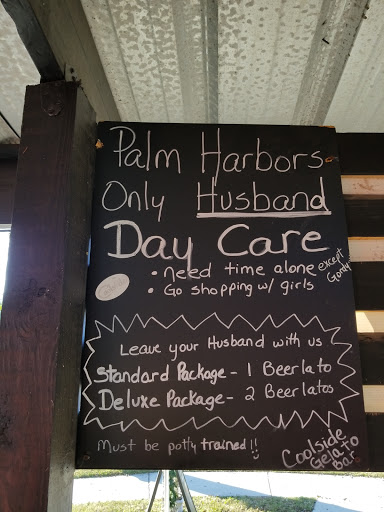 Palm Harbors
Only Husband
Day Care
• need time alone except
• Go shopping w/ girls
Leave your Husband with us
Standard Package - 1 Beerlato
Deluxe Package - 2 Beerlatos
Must be potty trained !!
Coolside
Gelato
Bar